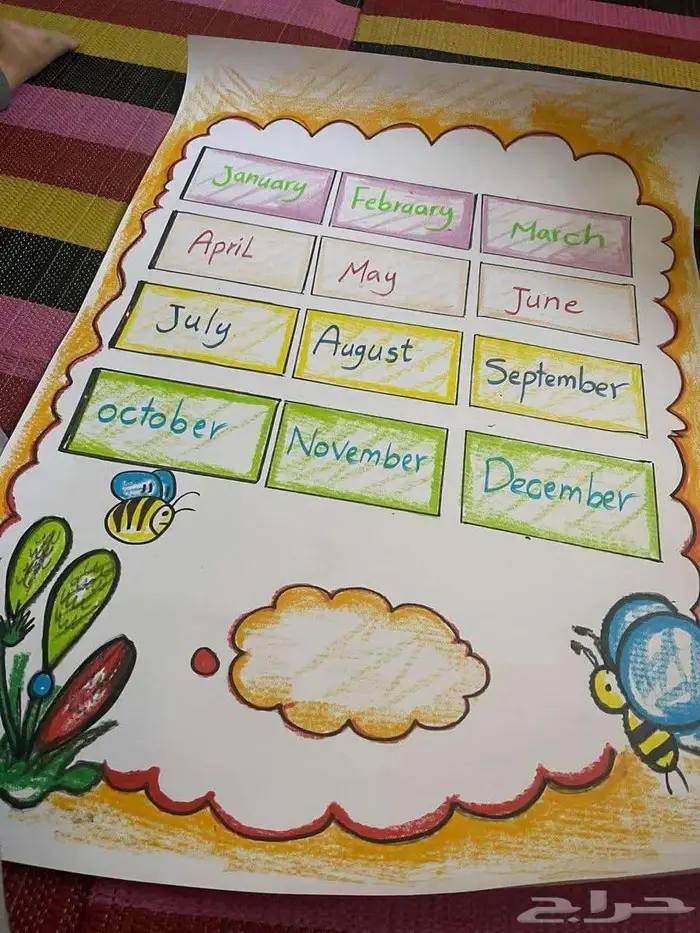 January February March
April May June
July August September
october November December
حراج